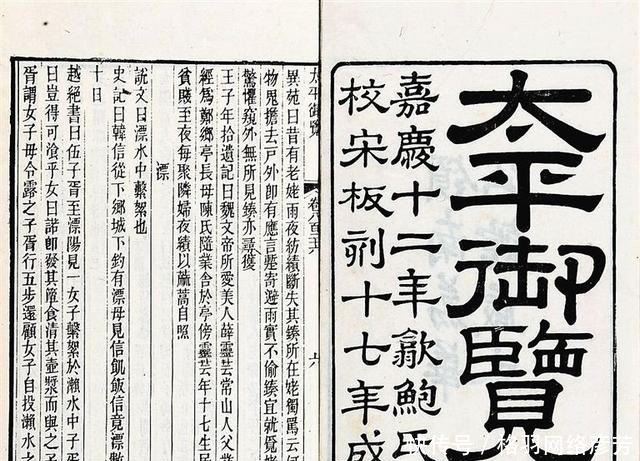 太平御覽
嘉慶十二年歙鮑氏
校宋板刻十七年成
太平御覽 卷八百二十六 六
異苑曰昔有老姥雨夜紡績斷失其緓所在姥獨罵云何
物鬼擔去戶外卽有應言蹔寄避雨實不偷緓宜就覓
驚懼窺外無所見緓亦尋獲
王子年拾遺記曰魏文帝所愛美人薛靈芸常山人父業
經爲酇鄉亭長母陳氏隨業舍於亭傍靈芸年十七生居
貧賤至夜每聚隣婦夜績以蔴蒿自照
漂
說文曰漂水中繫絮也
史記曰韓信從下鄉城下釣有漂母見信飢飯信竟漂數
十日
越絕書曰伍子胥至溧陽見一女子繫絮於瀨水中子
曰豈得可湌乎女曰諾卽發其簞食清其壺漿而與之子
胥謂女子毋令露之子胥行五步還顧女子自投瀨水之
快传号/格羽网络彦芳